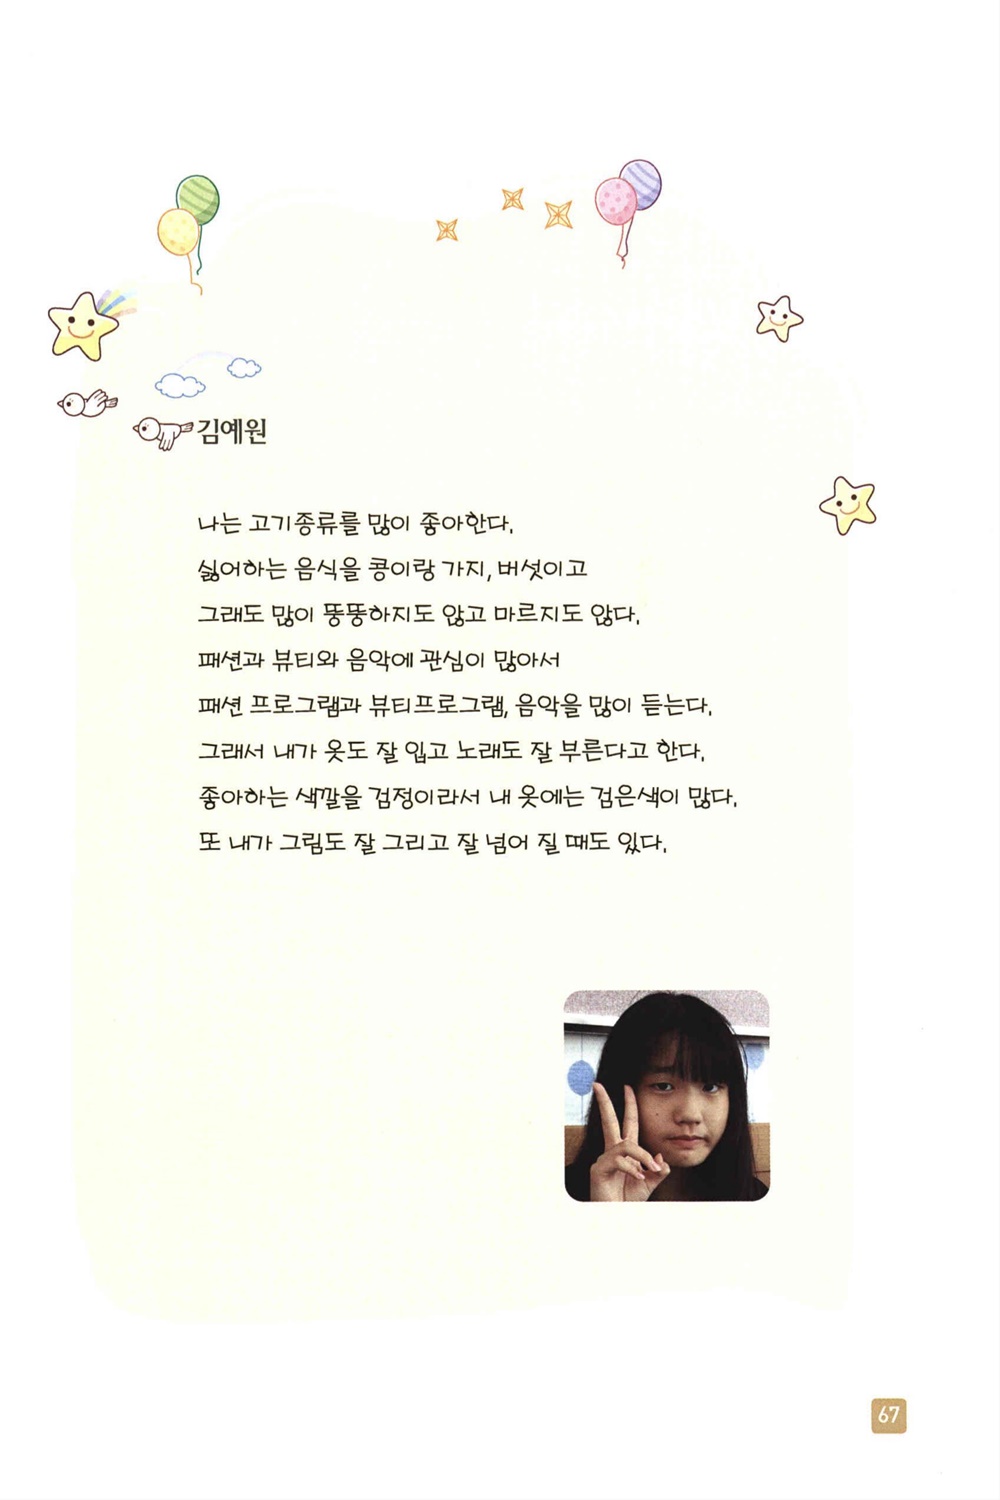 김예원
나는 고기종류를 많이 좋아한다.
싫어하는 음식을 콩이랑 가지, 버섯이고
그래도 많이 뚱뚱하지도 않고 마르지도 않다.
패션과 뷰티와 음악에 관심이 많아서
패션 프로그램과 뷰티프로그램, 음악을 많이 듣는다.
그래서 내가 옷도 잘 입고 노래도 잘 부른다고 한다.
좋아하는 색깔을 검정이라서 내 옷에는 검은색이 많다.
또 내가 그림도 잘 그리고 잘 넘어 질 때도 있다.
67